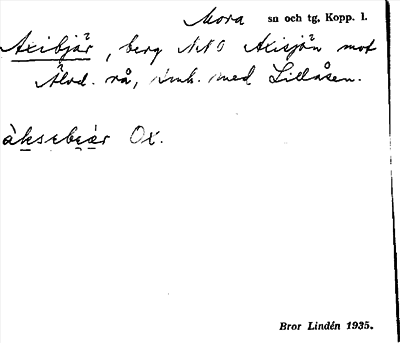 Mora sn och tg, Kopp. l.
Axibjär, berg NNO Axisjön mot
Älvd. rå, med Lillåsen.
àksebeàr Ox.
Bror Lindén 1935.